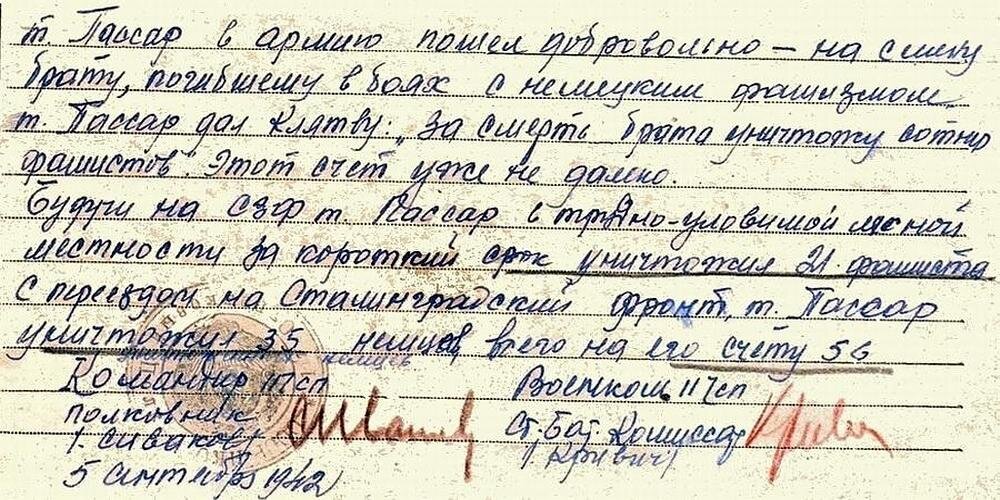 т Пассар в армию пошел добровольно – на смену
брату, погибшему в боях с немецким фашизмом
т. Пассар дал клятву: „За смерть брата уничтожу сотню
фашистов". Этот счет уже не далеко.
Будучи на СЗФ т. Пассар в трудно-уловимой лесной
местности за короткий срок уничтожил 21 фашиста
С переездом на Сталинградский фронт, т. Пассар
уничтожил 35 немцев всего на его счету 56
немцев
Командир 117сп Военком 117сп
полковник Ст. Бат. Комиссар
/. Сиваков/ /Кривич/
5 сентября 1942